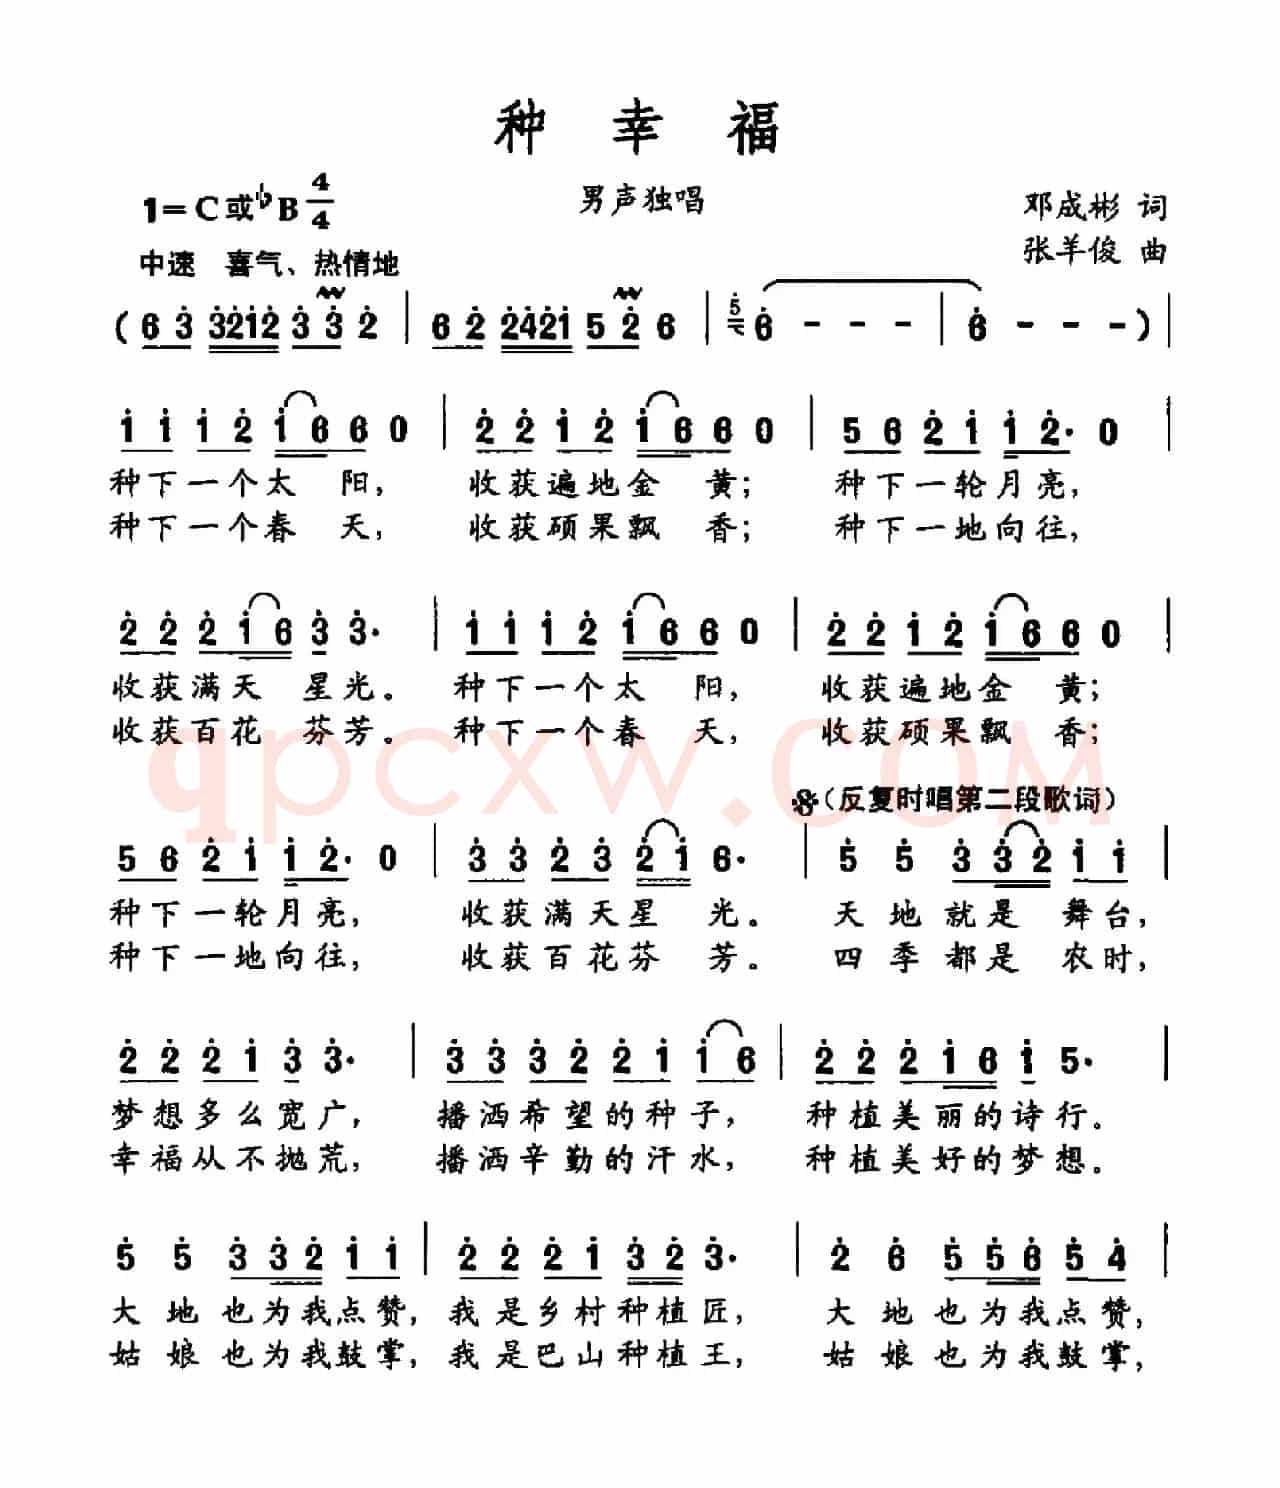 种 幸 福
1=C或♭B 4/4
男声独唱
邓成彬 词
中速 喜气、热情地
张羊俊 曲
( 6 3 3212 3 3 2 | 6 2 2421 5 2 6 | 5 6 - - - | 6 - - - ) |
1 1 1 2 1 6 6 0 | 2 2 1 2 1 6 6 0 | 5 6 2 1 1 2· 0 |
种下一个太 阳, 收获遍地金 黄; 种下一轮月亮,
种下一个春 天, 收获硕果飘 香; 种下一地向往,
2 2 2 1 6 3 3· | 1 1 1 2 1 6 6 0 | 2 2 1 2 1 6 6 0 |
收获满天 星光。 种下一个太 阳, 收获遍地金 黄;
收获百花 芬芳。 种下一个春 天, 收获硕果飘 香;
qpcxw.COM
𝄋(反复时唱第二段歌词)
5 6 2 1 1 2· 0 | 3 3 2 3 2 1 6· | 5 5 3 3 2 1 1 |
种下一轮月亮, 收获满天星 光。 天地就是 舞台,
种下一地向往, 收获百花芬 芳。 四季都是 农时,
2 2 2 1 3 3· | 3 3 3 2 2 1 1 6 | 2 2 2 1 6 1 5· |
梦想多么宽广, 播洒希望的种子, 种植美丽的诗行。
幸福从不抛荒, 播洒辛勤的汗水, 种植美好的梦想。
5 5 3 3 2 1 1 | 2 2 2 1 3 2 3· | 2 6 5 5 6 5 4 |
大地也为我点赞, 我是乡村种植匠, 大地也为我点赞,
姑娘也为我鼓掌, 我是巴山种植王, 姑娘也为我鼓掌,